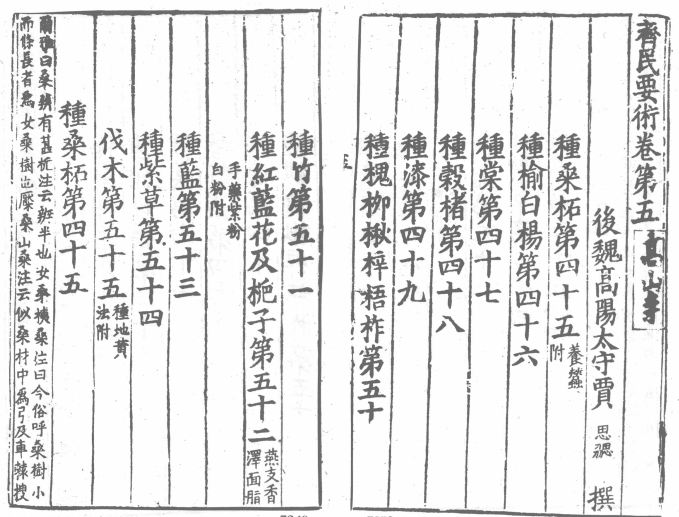 齊民要術卷第五 高山寺
後魏高陽太守賈 思勰 撰
種桒柘第四十五 養蠶附
種榆白楊第四十六
種棠第四十七
種穀楮第四十八
種漆第四十九
種槐柳楸梓梧柞第五十
種竹第五十一
種紅藍花及梔子第五十二 燕支香澤面脂
手藥紫粉白粉附
種藍第五十三
種紫草第五十四
伐木第五十五 種地黄法附
種桒柘第四十五
爾雅曰桑辨有葚梔注云辨半也女桒桋桑注曰今俗呼桑樹小
而條長者為女桑樹也檿桑山桒注云似桑材中為弓及車轅搜